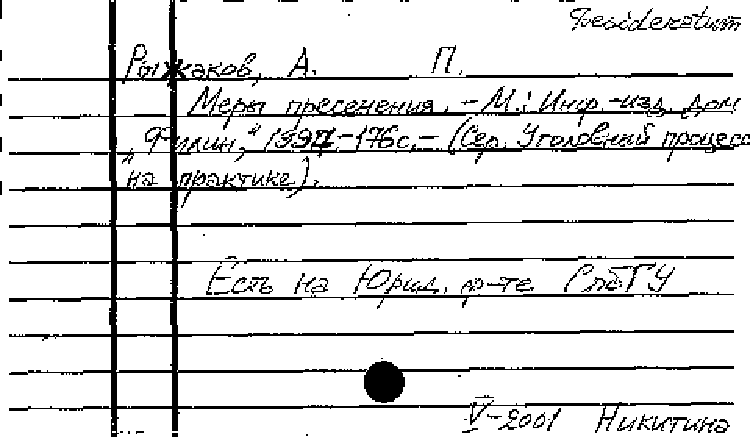 Desideratum
Рыжаков, А. П.
Меры пресечения. - М.: Инф.-изд. дом
„Филин," 1997.-176с.- (Сер. Уголовный процесс
на практике).
Есть на Юрид. ф-те СпбГУ
V-2001 Никитина